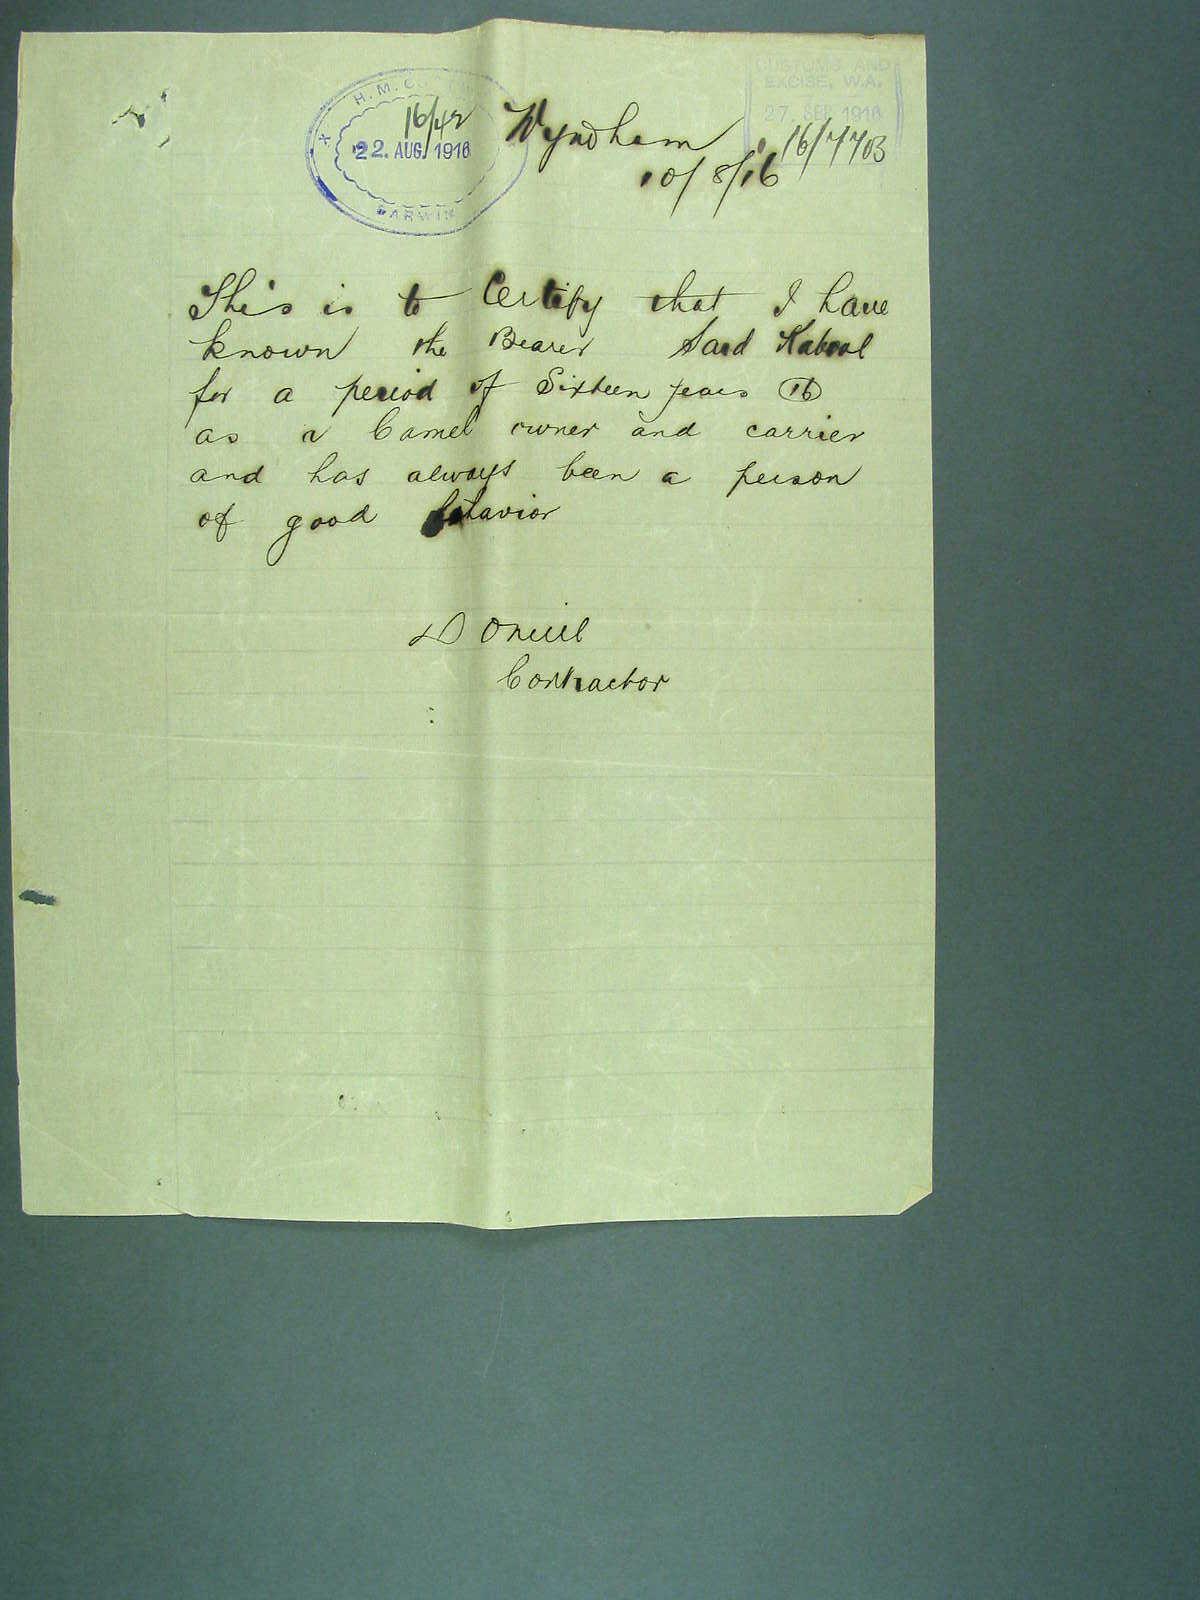 H.M.C.
16/42
22. AUG. 1916
DARWIN
CUSTOMS AND
EXCISE, W.A.
27. SEP. 1916
16/7703
Wyndham
10/8/16
This is to Certify that I have
known the Bearer Said Kabool
for a period of Sixteen years (16)
as a Camel owner and carrier
and has always been a person
of good behavior
D Oneil
Contractor